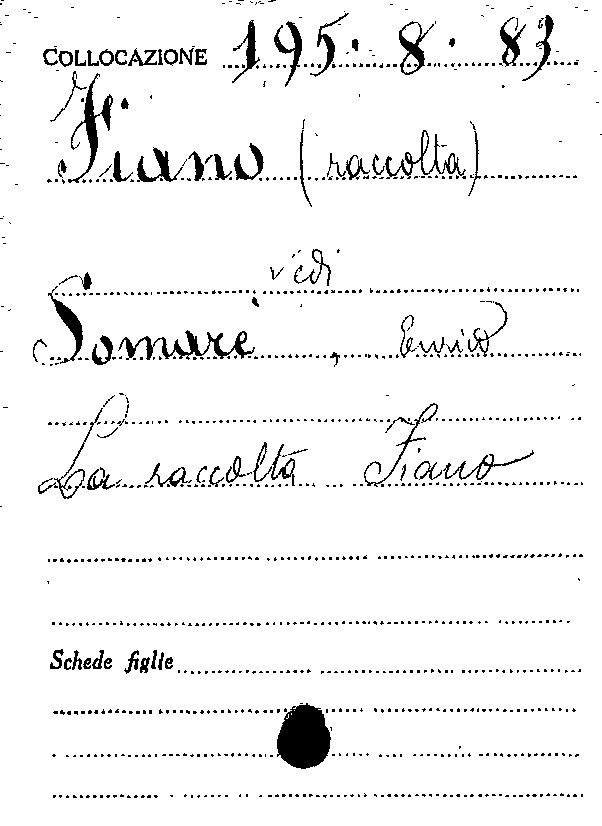 COLLOCAZIONE 195.8.83
Fiano (raccolta)
vedi
Somarè, Enrico
La raccolta Fiano
Schede figlie